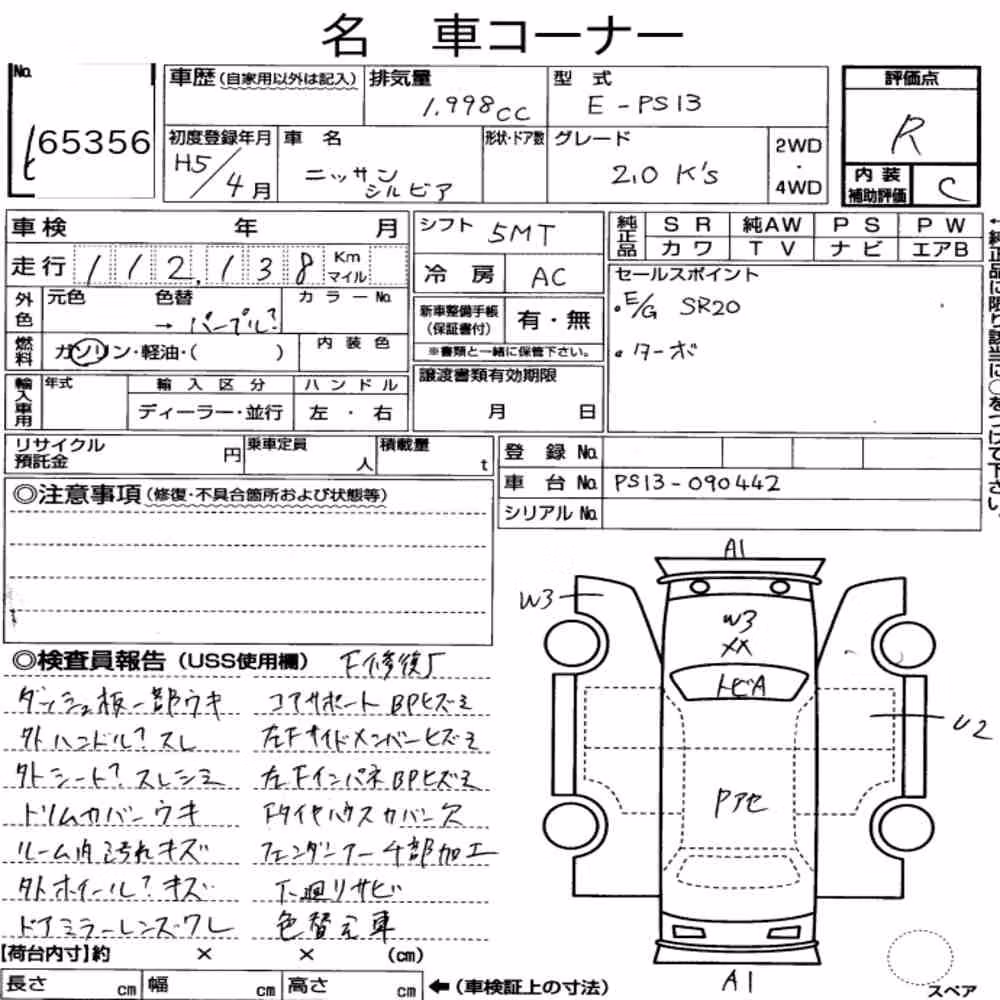 名 車コーナー
No.
65356
車歴(自家用以外は記入)
排気量
1.998cc
型 式
E-PS13
初度登録年月
H5/4月
車 名
ニッサン
シルビア
形状・ドア数
グレード
2.0 K's
2WD
・
4WD
評価点
R
内 装
補助評価
C
車検 年 月
走行 112,138 Km
マイル
外色
元色 色替
→ パープル?
カラーNo.
燃料
ガソリン・軽油・( )
内 装 色
輸入車用
年式
輸 入 区 分
ディーラー・並行
ハ ン ド ル
左 ・ 右
シフト 5MT
冷 房 AC
新車整備手帳
(保証書付)
有・無
※書類と一緒に保管下さい。
譲渡書類有効期限
月 日
純正品
S R 純AW P S P W
カ ワ T V ナ ビ エアB
セールスポイント
・E/G SR20
・ターボ
←純正品に限り該当に○をつけて下さい。
リサイクル
預託金 円
乗車定員 人
積載量 t
登 録 No.
車 台 No. PS13-090442
シリアル No.
◎注意事項(修復・不具合箇所および状態等)
◎検査員報告(USS使用欄)
F修復歴
ダッシュ板一部ウキ
外ハンドル?スレ
外シート?スレシミ
ドリムカバーウキ
ルーム内汚れキズ
外ホイール?キズ
ドアミラーレンズワレ
コアサポートBPヒズミ
左Fサイドメンバーヒズミ
左FインパネBPヒズミ
Fタイヤハウスカバー欠
フェンダーアーチ部加工
下廻りサビ
色替え車
A1
W3
W3
XX
トビA
U2
Pアセ
A1
スペア
【荷台内寸】約 × × (cm)
長さ cm 幅 cm 高さ cm ←(車検証上の寸法)